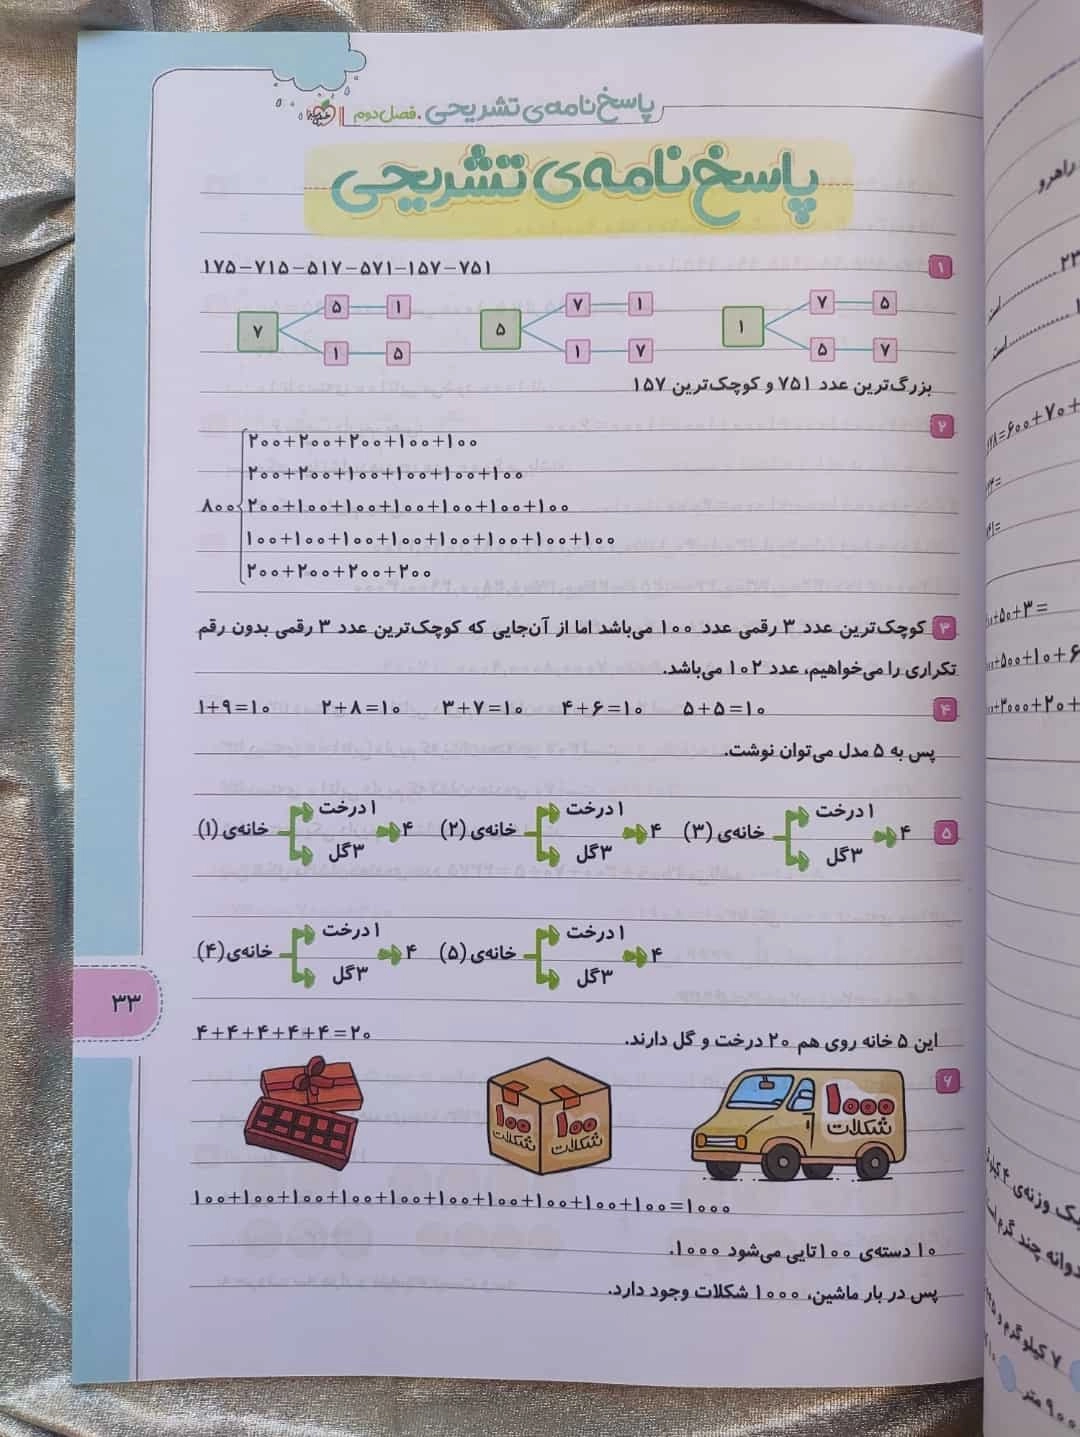 پاسخ‌نامه‌ی تشریحی . فصل دوم
پاسخ‌نامه‌ی تشریحی
۱
۱۷۵-۷۱۵-۵۱۷-۵۷۱-۱۵۷-۷۵۱
۷ ۵ ۱
۱ ۵
۵ ۷ ۱
۱ ۷
۱ ۷ ۵
۵ ۷
بزرگ‌ترین عدد ۷۵۱ و کوچک‌ترین ۱۵۷
۲
۸۰۰
۲۰۰+۲۰۰+۲۰۰+۱۰۰+۱۰۰
۲۰۰+۲۰۰+۱۰۰+۱۰۰+۱۰۰+۱۰۰
۲۰۰+۱۰۰+۱۰۰+۱۰۰+۱۰۰+۱۰۰+۱۰۰
۱۰۰+۱۰۰+۱۰۰+۱۰۰+۱۰۰+۱۰۰+۱۰۰+۱۰۰
۲۰۰+۲۰۰+۲۰۰+۲۰۰
۳ کوچک‌ترین عدد ۳ رقمی عدد ۱۰۰ می‌باشد اما از آن‌جایی که کوچک‌ترین عدد ۳ رقمی بدون رقم
تکراری را می‌خواهیم، عدد ۱۰۲ می‌باشد.
۴
۱+۹=۱۰ ۲+۸=۱۰ ۳+۷=۱۰ ۴+۶=۱۰ ۵+۵=۱۰
پس به ۵ مدل می‌توان نوشت.
۵
خانه‌ی (۱) ۱ درخت ۳ گل ۴
خانه‌ی (۲) ۱ درخت ۳ گل ۴
خانه‌ی (۳) ۱ درخت ۳ گل ۴
خانه‌ی (۴) ۱ درخت ۳ گل ۴
خانه‌ی (۵) ۱ درخت ۳ گل ۴
۳۳
این ۵ خانه روی هم ۲۰ درخت و گل دارند.
۴+۴+۴+۴+۴=۲۰
۶
۱۰۰۰
شکلات
۱۰۰
شکلات
۱۰۰
شکلات
۱۰۰+۱۰۰+۱۰۰+۱۰۰+۱۰۰+۱۰۰+۱۰۰+۱۰۰+۱۰۰+۱۰۰=۱۰۰۰
۱۰ دسته‌ی ۱۰۰تایی می‌شود ۱۰۰۰.
پس در بار ماشین، ۱۰۰۰ شکلات وجود دارد.
راهرو
۲۳
است
است
=۶۰۰+۷۰+
+۵۰+۳=
+۵۰۰+۱۰+۶
+۳۰۰۰+۲۰+
یک وزنه‌ی ۴
چند گرم
۷ کیلوگرم و
۹۰۰ متر